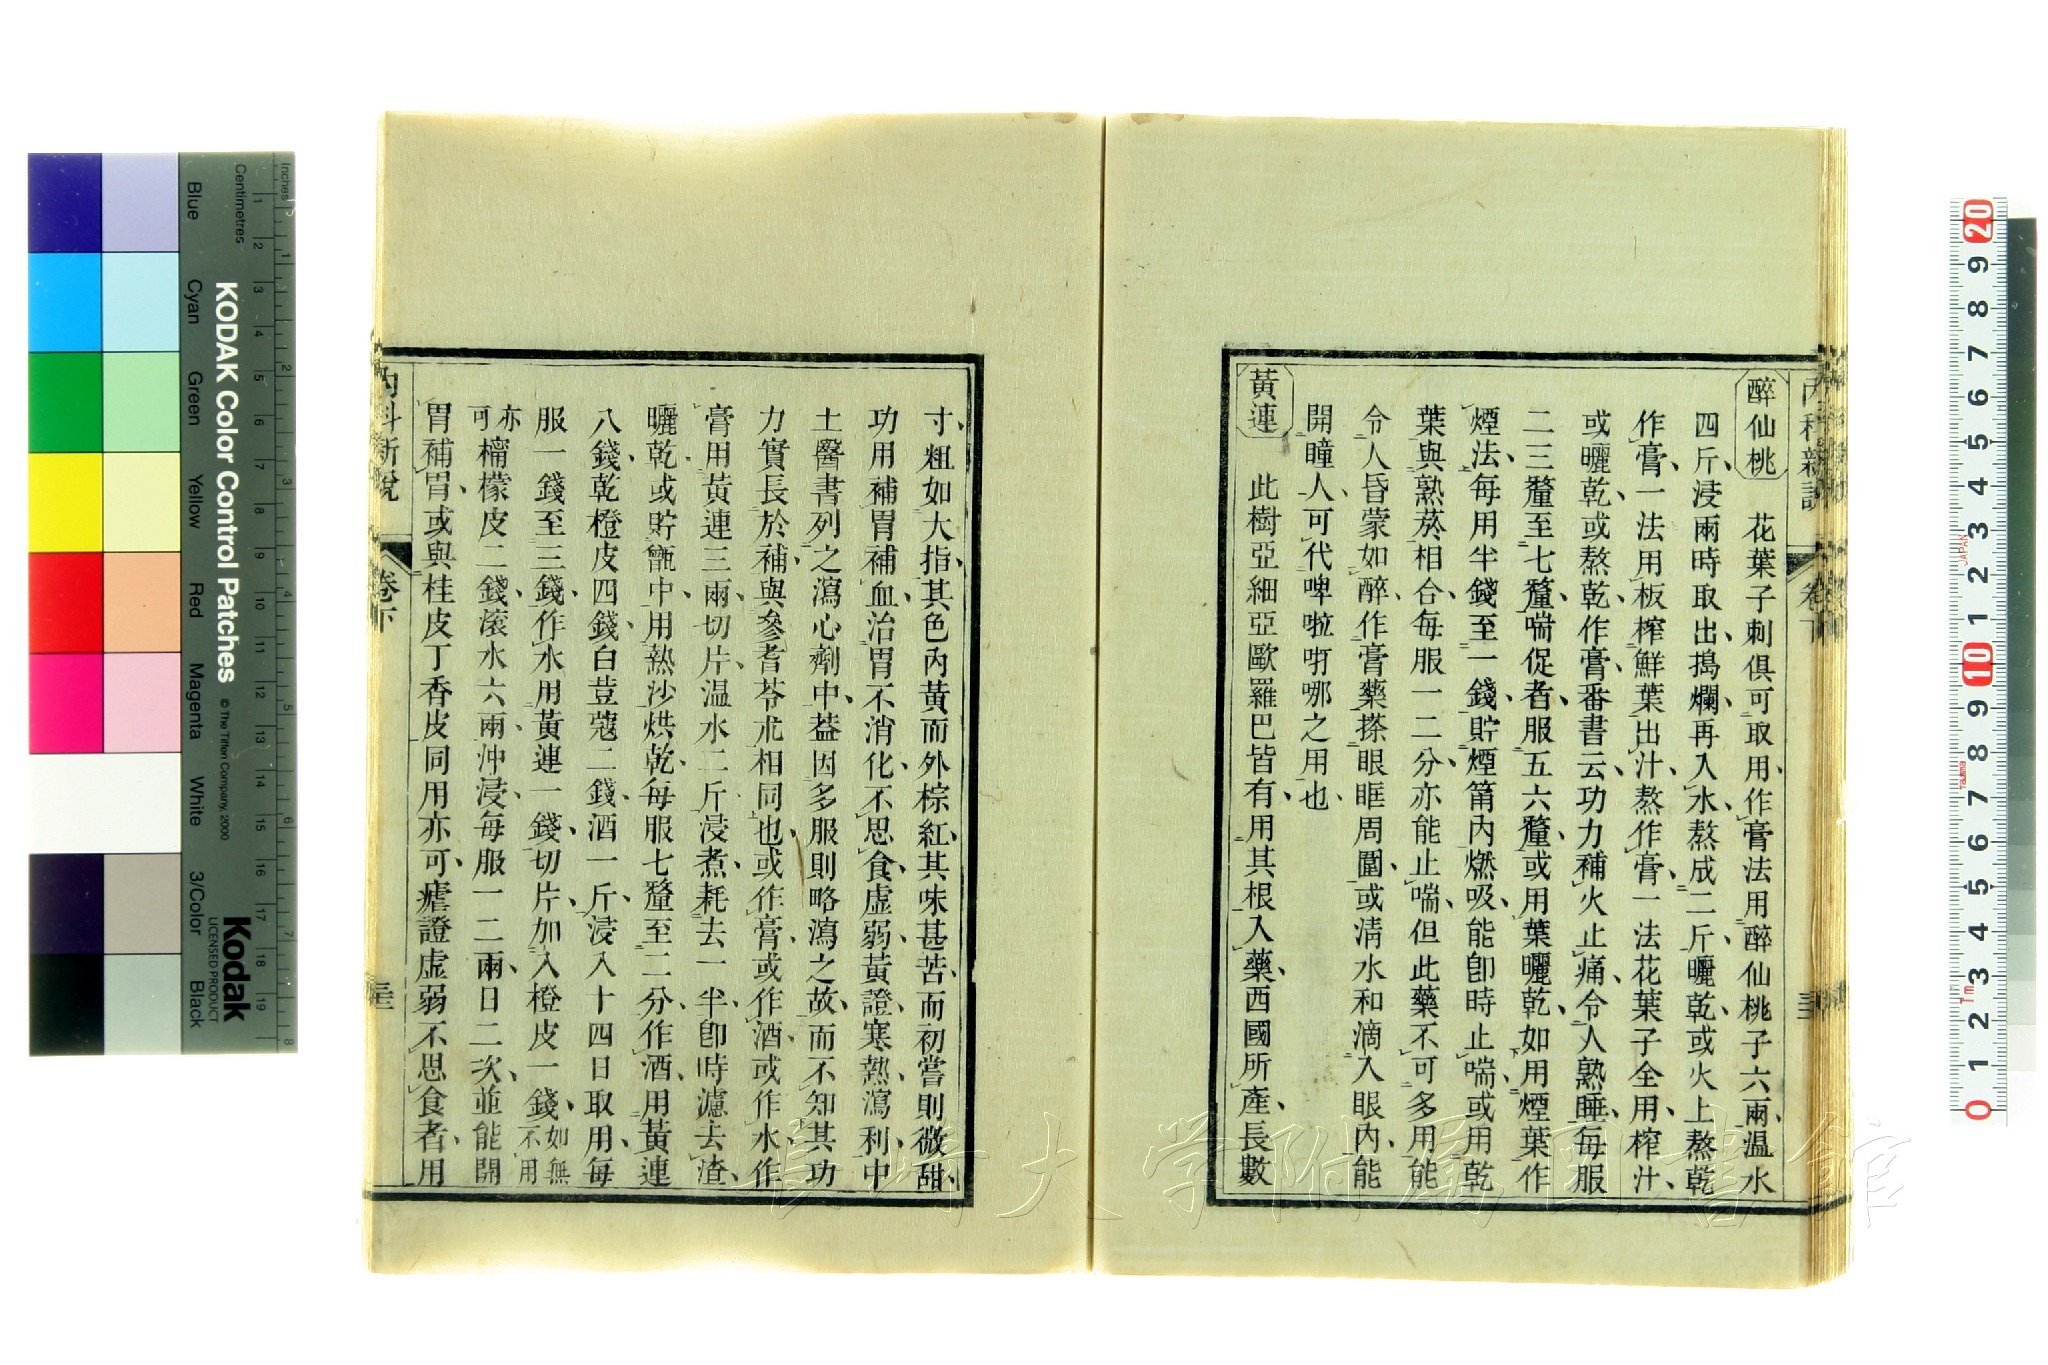 內科新說
卷下
醉仙桃 花葉子刺俱可取用作膏法用醉仙桃子六兩温水
四斤浸兩時取出搗爛再入水熬成二斤曬乾或火上熬乾
作膏一法用板榨鮮葉出汁熬作膏一法花葉子全用榨汁
或曬乾或熬乾作膏番書云功力補火止痛令人熟睡每服
二三釐至七釐喘促者服五六釐或用葉曬乾如用煙葉作
煙法每用半錢至一錢貯煙筩內燃吸能卽時止喘或用乾
葉與熟菸相合每服一二分亦能止喘但此藥不可多用能
令人昏蒙如醉作膏藥搽眼眶周圍或清水和滴入眼內能
開瞳人可代啤啦㖠哪之用也
黃連 此樹亞細亞歐羅巴皆有用其根入藥西國所產長數
寸粗如大指其色內黃而外棕紅其味甚苦而初嘗則微甜
功用補胃補血治胃不消化不思食虛弱黃證寒熱瀉利中
土醫書列之瀉心劑中葢因多服則略瀉之故而不知其功
力實長於補與參耆苓朮相同也或作膏或作酒或作水作
膏用黃連三兩切片温水二斤浸煮耗去一半卽時濾去渣
曬乾或貯甑中用熱沙烘乾每服七釐至二分作酒用黃連
八錢乾橙皮四錢白荳蔻二錢酒一斤浸入十四日取用每
服一錢至三錢作水用黃連一錢切片加入橙皮一錢如無不用
亦可檸檬皮二錢滚水六兩沖浸每服一二兩日二次並能開
胃補胃或與桂皮丁香皮同用亦可瘧證虛弱不思食者用
內科新說
卷下
長崎大学附属図書館
Inches
Centimetres
Blue
Cyan
Green
Yellow
Red
Magenta
White
3/Color
Black
KODAK Color Control Patches
© The Tiffen Company, 2000
Kodak
LICENSED PRODUCT
1 2 3 4 5 6 7 8 9 10 11 12 13 14 15 16 17 18 19
1 2 3 4 5 6 7 8
20 9 8 7 6 5 4 3 2 1 10 9 8 7 6 5 4 3 2 1 0
JAPAN
Tajima
Tm